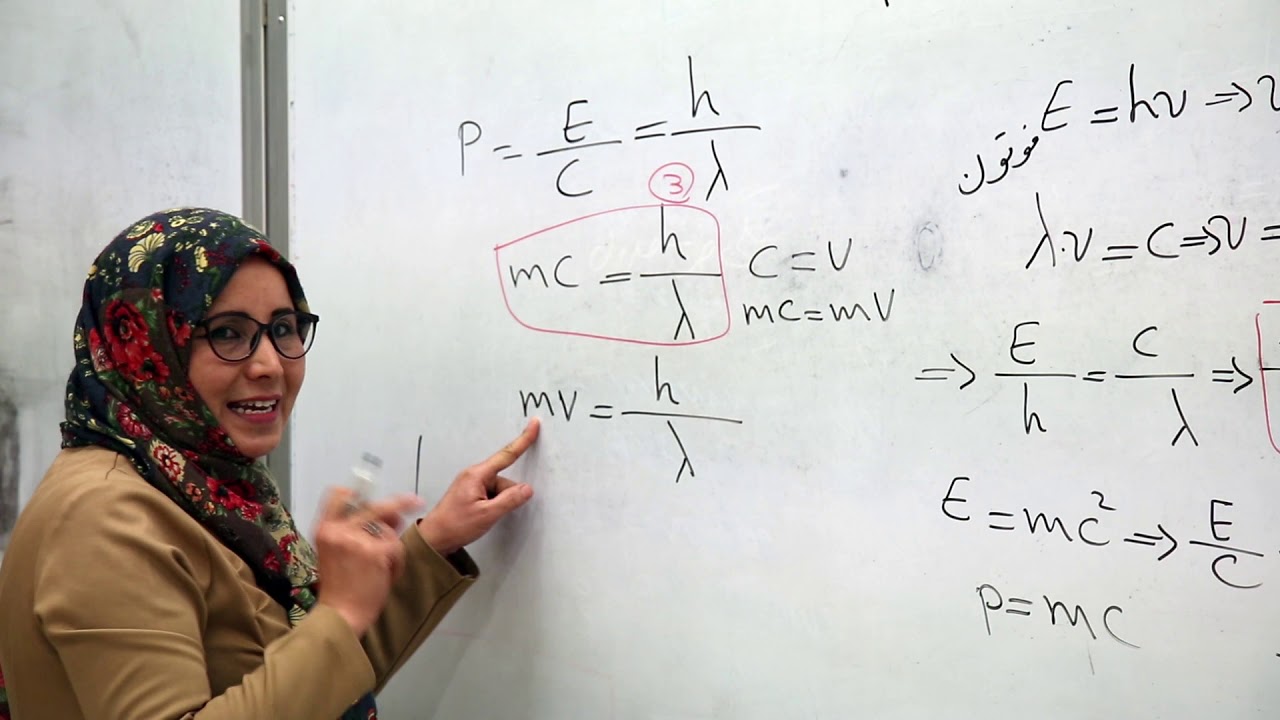 P = E/C = h/λ
3
mC = h/λ
C = V
mC = mV
mV = h/λ
E = hν ⇒ ν
فوتون
λ.ν = C ⇒ ν =
⇒ E/h = C/λ ⇒
E = mC² ⇒ E/C
P = mC